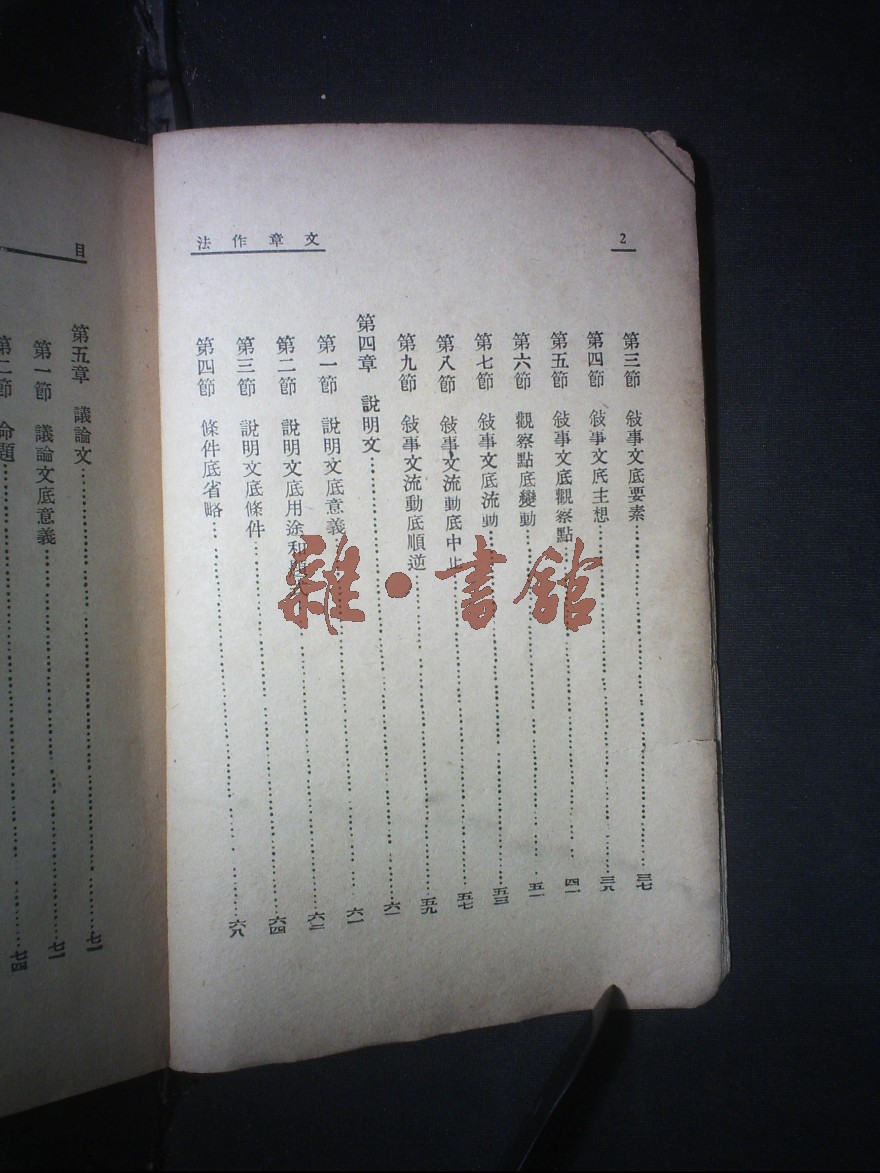 2
文章作法
第三節 敍事文底要素……三七
第四節 敍事文底主想……三八
第五節 敍事文底觀察點……四一
第六節 觀察點底變動……五一
第七節 敍事文底流動……五三
第八節 敍事文流動底中止……五七
第九節 敍事文流動底順逆……五九
第四章 說明文……六一
第一節 說明文底意義……六一
第二節 說明文底用途和……六二
第三節 說明文底條件……六四
第四節 條件底省略……六八
目
第五章 議論文……七一
第一節 議論文底意義……七一
第二節 命題……七四
雜·書館